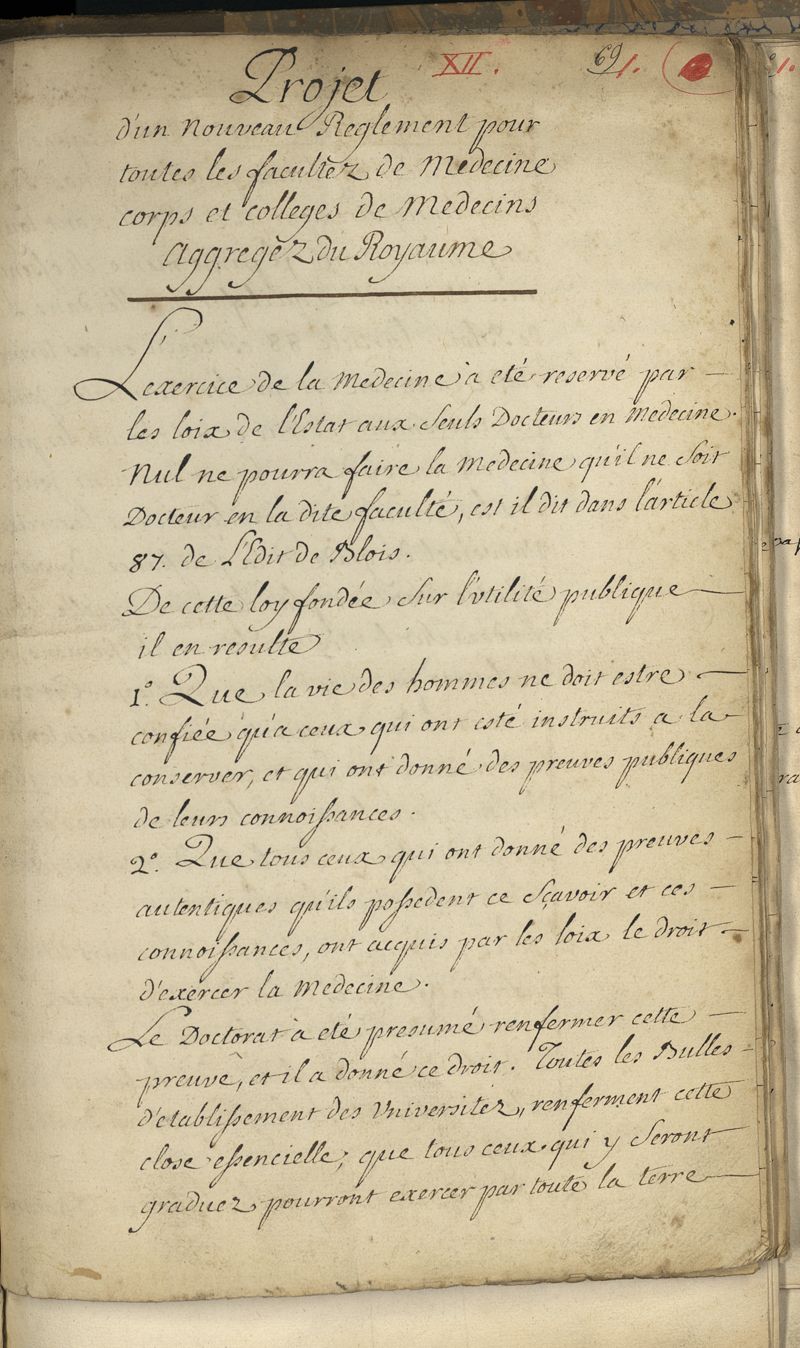 XII.
69
1.
Projet
d'un nouveau Reglement pour
toutes les facultez de Medecine
corps et colleges de Medecins
Aggregez du Royaume
L'exercice de la Medecine a eté reservé par
les loix de l'Estat aux seuls Docteurs en Medecine.
Nul ne pourra faire la Medecine qu'il ne soit
Docteur en la dite faculté, est il dit dans l'article
87. de L'Edit de Blois.
De cette loy fondée sur l'vtilité publique
il en resulte
1º. Que la vie des hommes ne doit estre
confiée qu'a ceux qui ont esté instruits a la
conserver, et qui ont donné des preuves publiques
de leurs connoissances.
2º. Que tous ceux qui ont donné des preuves
autentiques qu'ils possedent ce sçavoir et ces
connoissances, ont acquis par les loix le droit
d'exercer la Medecine.
Le Doctorat a eté presumé renfermer cette
preuve, et il a donné ce droit. Toutes les Bulles
d'etablissement des Vniversitez, renferment cette
close essencielle, que tous ceux qui y seront
graduez pourront exercer par toute la terre